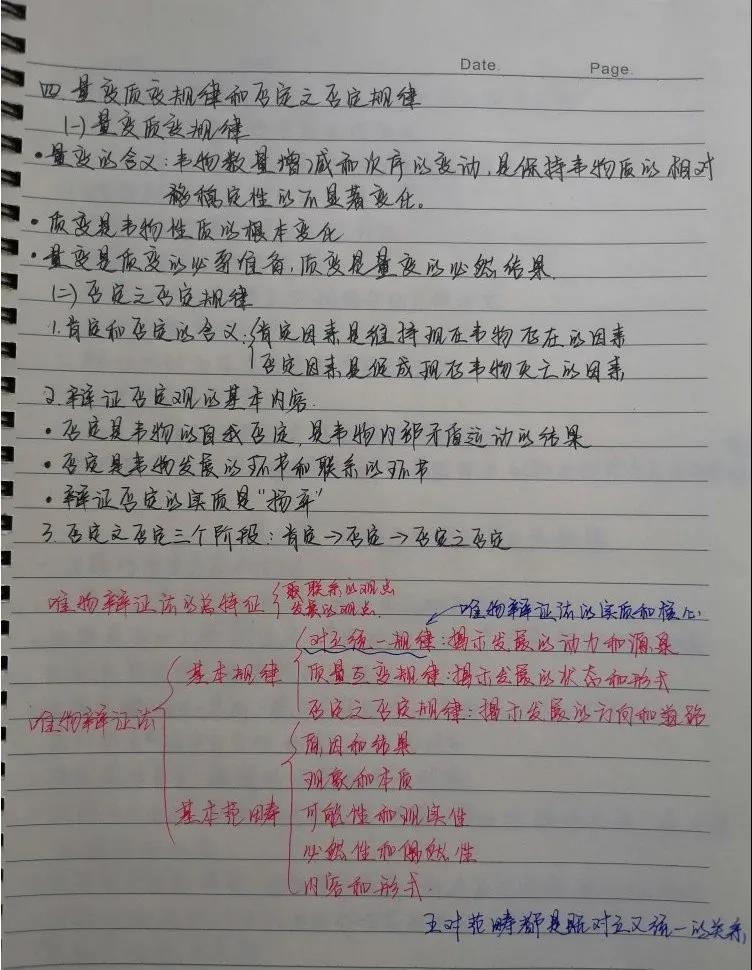 Date.
Page.
四.量变质变规律和否定之否定规律
(一)量变质变规律
•量变的含义:事物数量增减和次序的变动,是保持事物质的相对
稳定性的不显著变化。
•质变是事物性质的根本变化
•量变是质变的必要准备,质变是量变的必然结果.
(二)否定之否定规律
1.肯定和否定的含义:肯定因素是维持现存事物存在的因素
否定因素是促成现存事物灭亡的因素
2.辩证否定观的基本内容.
•否定是事物的自我否定,是事物内部矛盾运动的结果
•否定是事物发展的环节和联系的环节
•辩证否定的实质是"扬弃"
3.否定之否定三个阶段:肯定→否定→否定之否定
唯物辩证法的总特征
联系的观点
发展的观点.
唯物辩证法的实质和核心
对立统一规律:揭示发展的动力和源泉
基本规律
质量互变规律:揭示发展的状态和形式
否定之否定规律:揭示发展的方向和道路
唯物辩证法
原因和结果
现象和本质
基本范畴
可能性和现实性
必然性和偶然性
内容和形式.
五对范畴都是既对立又统一的关系